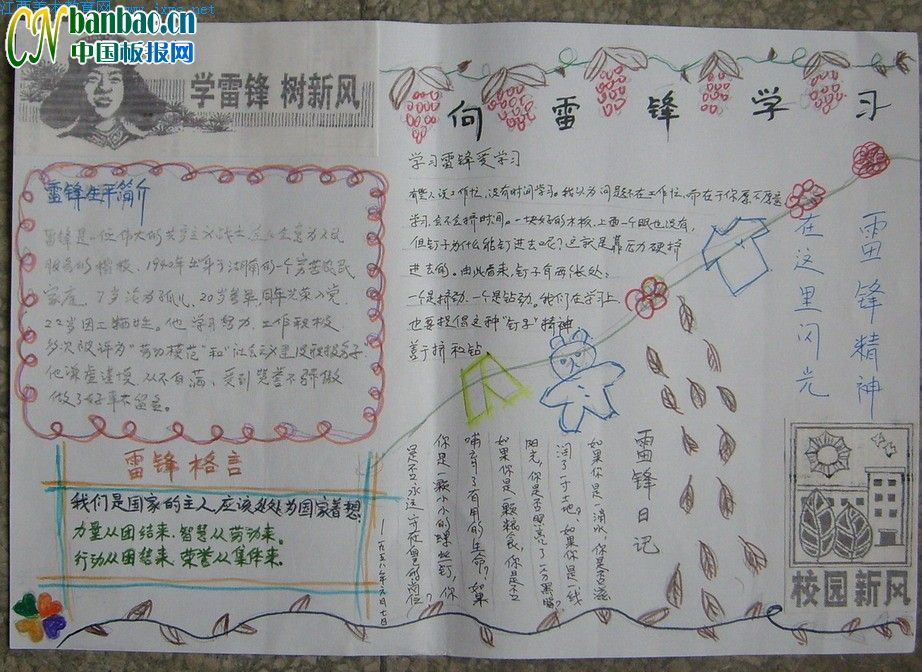 江西美术教育网 www.jxms.net
CN banbao.cn
中国板报网
学雷锋 树新风
向雷锋学习
学习雷锋爱学习
有些人说工作忙,没有时间学习。我认为问题不在工作忙,而在于你愿不愿意
学习,会不会挤时间。一块好好的木板,上面一个眼也没有,
但钉子为什么能钉进去呢?这就是靠压力硬挤
进去的。由此看来,钉子有两个长处:
一个是挤劲,一个是钻劲。我们在学习上,
也要提倡这种"钉子"精神
善于挤和钻。
雷锋生平简介
雷锋是一位伟大的共产主义战士,全心全意为人民
服务的楷模,1940年出生于湖南的一个穷苦农民
家庭,7岁沦为孤儿,20岁参军,同年光荣入党,
22岁因工牺牲。他学习努力,工作积极
多次被评为"劳动模范"和"社会主义建设积极分子
他谦虚谨慎,从不自满,受到赞誉不骄傲
做了好事不留名。
雷锋格言
我们是国家的主人,应该处处为国家着想
力量从团结来,智慧从劳动来。
行动从团结来,荣誉从集体来。
雷锋精神
在这里闪光
雷锋日记
如果你是一滴水,你是否滋
润了一寸土地?如果你是一线
阳光,你是否照亮了一分黑暗?
如果你是一颗粮食,你是否
哺育了有用的生命?如果
你是一颗小小的螺丝钉,你
是否永远守在里的岗位?
一九五八年六月七日
校园新风